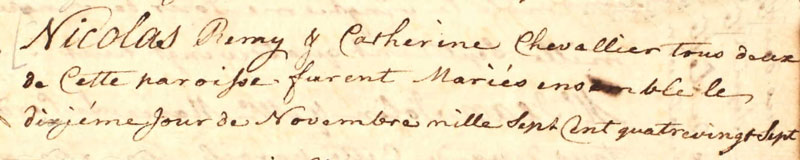 Nicolas Remy & Catherine Chevallier tous deux
de Cette paroisse furent Mariés ensemble le
dixiéme Jour de Novembre mille Sept Cent quatrevingt Sept